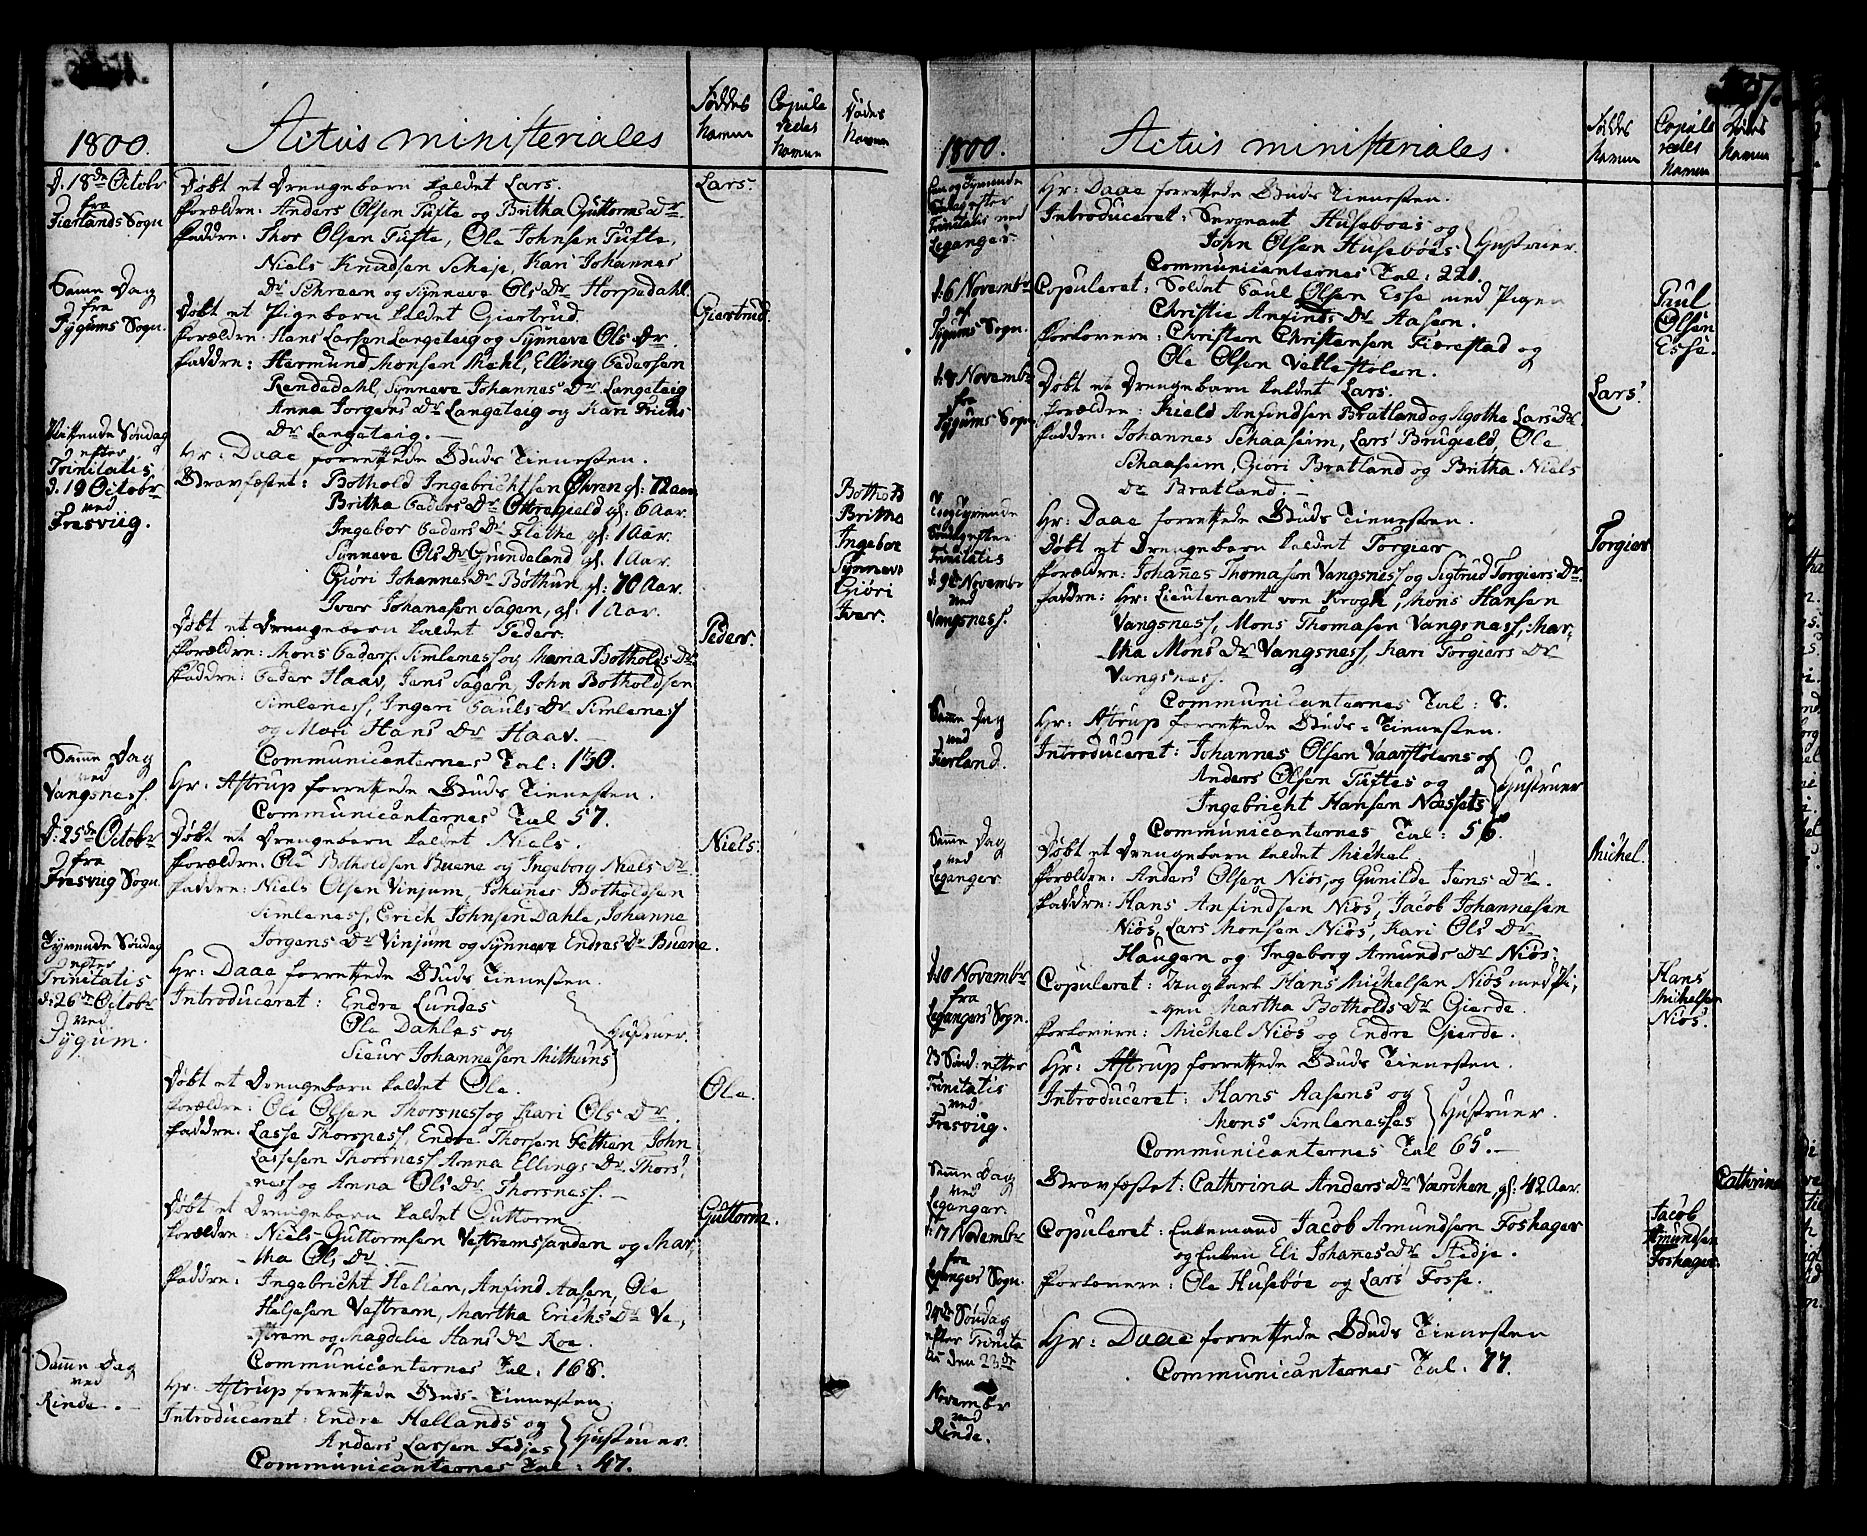 1800.
Actus ministeriales
Føddes Namun
Copule redes Namun
Dødes Namun
D. 18de Octobr
fra
Fierlands Sogn
Døbt et Drengebarn kaldet Lars.
Lars.
Forældre: Anders Olsen Tufte og Britha Guttorms Dr
Faddre: Thor Olsen Tufte, Ole Johnsen Tufte,
Niels Knudsen Scheje, Kari Johannes
Dr Schreen og Synneve Ols Dr Horpedahl.
Samme Dag
fra
Tygums Sogn.
Døbt et Pigebarn kaldet Giertrud.
Giertrud.
Forældre: Hans Larsen Langeteig og Synneve Ols Dr
Faddre: Hermund Monsen Mehl, Elling Pedersen
Rendedahl, Synneve Johannes Dr Langeteig
Anna Jorgens Dr Langeteig og Kari Erichs
Dr Langeteig.
Nittende Søndag
efter
Trinitatis
d. 19 Octobr
ved
Fresviig.
Hr: Daae forrettede Guds Tienesten.
Gravfæstet: Bothold Ingebrichtsen Øhren gl: 72 aar
Britha Peders Dr Ottregield gl: 6 Aar.
Ingebor Peders Dr Flethe gl: 1 Aar.
Synneve Ols Dr Grundeland gl. 1 Aar.
Giøri Johannes Dr Bøthun gl: 70 Aar.
Iver Johanesen Sagen, gl: 1 Aar.
Bothold
Britha
Ingebor
Synneve
Giøri
Iver.
Døbt et Drengebarn kaldet Peder.
Peder.
Forældre: Mons Peders: Simlenes og Maria Botholds Dr
Faddre: Peder Haav, Jens Sagen, John Botholdsen
Simlenes, Ingeri Pauls Dr Simlenes
og Mari Hans Dr Haav.
Communicanternes Tal: 130.
Samme Dag
ved
Vangsness.
Hr: Astrup forrettede Guds Tienesten.
Communicanternes Tal 57.
D: 25de Octobr
fra
Fresvug Sogn.
Døbt et Drengebarn kaldet Niels.
Niels.
Forældre: Ole Botholdsen Buene og Ingeborg Niels Dr.
Faddre: Niels Olsen Vinjum, Johanes Botholdsen
Simlenes, Erich Johnsen Dahle, Johanne
Jorgens Dr Vinjum og Synneve Endres Dr Buene.
Tyvende Søndag
efter
Trinitatis
d: 26de Octobr
ved
Tygum.
Hr: Daae forrettede Guds Tienesten.
Introduceret: Endre Lundes
Ole Dahles og
Sieur Johannesen Mithuns
Hustruer.
Døbt et Drengebarn kaldet Ole.
Ole.
Forældre: Ole Olsen Thorsnes og Kari Ols Dr.
Faddre: Lasse Thorsnes, Endre Thorsen Fethen, John
Lassesen Thorsnes, Anna Ellings Dr. Thors
ness og Anna Ols Dr. Thorsness.
Døbt et Drengebarn kaldet Guttorm
Guttorm.
Forældre: Niels Guttormsen Vestremssanden og Mar,
tha Ols Dr
Faddre: Ingebricht Hellen, Anfind Aasen, Ole
Heljesen Vestrem, Martha Erichs Dr Ve,
strem og Magdele Hans Dr Roe.
Communicanternes Tal: 168.
Samme Dag
ved
Rinde.
Hr: Astrup forrettede Guds-Tienesten.
Introduceret: Endre Hellands og
Anders Larsen Fedjes
Hustruer.
Communicanternes Tal: 47.
1800.
Actus ministeriales.
Føddes Namun
Copule redes Namun
Dødes Namun
Een og Tyvende
Søndag efter
Trinitatis ved
Leganger.
Hr: Daae forrettede Guds Tienesten.
Introduceret: Sergeant Huseboes og
John Olsen Husebøes
Hustruer.
Communicanternes Tal: 221.
d: 6 Novembr
af
Tygums Sogn.
Copuleret: Soldat Paul Olsen Esse med Pigen
Christie Anfinds Dr Aasen.
Forlovere: Christen Christensen Fierestad og
Ole Olsen Vetlestolen.
Paul
Olsen
Esse.
d. 8 Novembr
fra
Tygums Sogn
Døbt et Drengebarn kaldet Lars.
Lars.
Forældre: Kield Anfindsen Bratland og Agothe Lars Dr
Faddre: Johannes Schaasheim, Lars Brugield, Ole
Schaasheim, Giøri Bratland og Britha Niels
Dr Bratland.
Too Tyvende
Søndag efter
Trinitatis
d. 9de Novembr
ved
Vangsness.
Hr: Daae forrettede Guds Tienesten.
Døbt et Drengebarn kaldet Torgier
Torgier
Forældre: Johanes Thomasen Vangsnes og Sigtrud Torgiers Dr.
Faddre: Hr: Lieutenant von Krogh, Mons Hansen
Vangsness, Mons Thomasen Vangsness, Mar,
tha Mons Dr Vangsness, Kari Torgiers Dr
Vangsness.
Communicanternes Tal: 8.
Samme Dag
ved
Fierland.
Hr: Astrup forrettede Guds-Tienesten.
Introduceret: Johannes Olsen Vaarstølens og
Anders Olsen Tuftes og
Ingebricht Hansen Næssets
Hustruer
Communicanternes Tal: 56.
Samme Dag
ved
Leganger
Døbt et Drengebarn kaldet Michel
Michel.
Forældre: Anders Olsen Niøs, og Gunilde Jens Dr.
Faddre: Hans Anfindsen Niøs, Jacob Johannesen
Niøs, Lars Monsen Niøs, Kari Ols Dr
Haugen og Ingeborg Amunds Dr Niøs.
d. 10 Novembr
fra
Legangers Sogn.
Copuleret: Ungkarl Hans Michelsen Niøs med Pi,
gen Martha Botholds Dr Gierde.
Forlovere: Michel Niøs og Endre Gierde.
Hans
Michelsen
Niøs.
23 Sønd: efter
Trinitatis
ved
Fresviig.
Hr: Astrup forrettede Guds Tienesten.
Introduceret: Hans Aasens og
Mons Simlenesses
Hustruer.
Communicanternes Tal 65.
Samme Dag
ved
Leganger.
Gravfæstet: Cathrina Anders Dr Værchen, gl: 42 Aar.
Cathrina
d: 17 Novembr
fra
Legangers Sogn.
Copuleret: Enkemand Jacob Amundsen Foshager
og Enken Eli Johanes Dr Stedje.
Forlovere: Ole Husebøe og Lars Fosse.
Jacob
Amundsen
Foshager.
24de Søndag
efter Trinita
tis den 23de
Novembr
ved
Rinde.
Hr: Daae forrettede Guds Tienesten
Communicanternes Tal. 77.